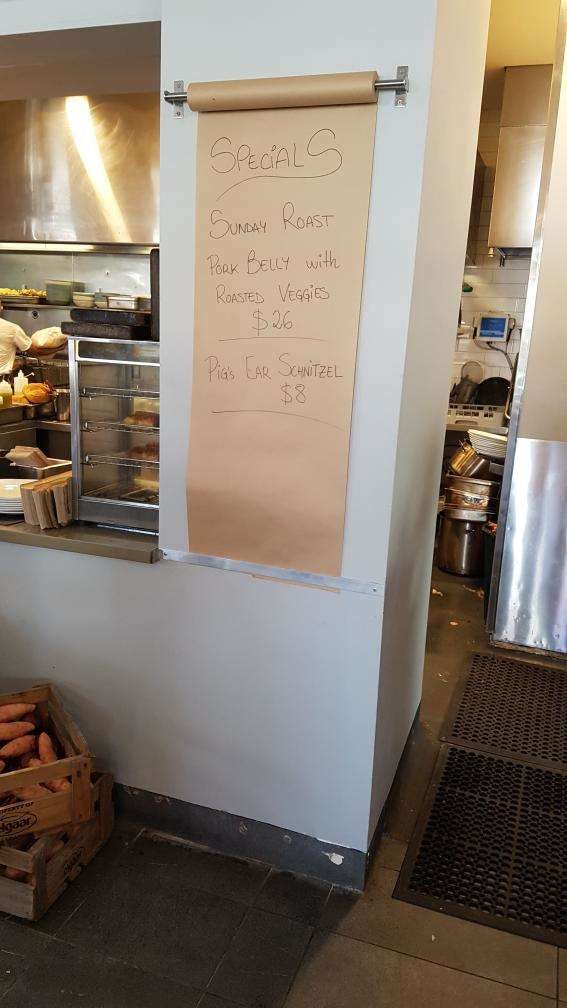 SPECiALS
SUNDAY ROAST
PORK BELLY with
ROASTED VEGGIES
$26
PIG'S EAR SCHNITZEL
$8